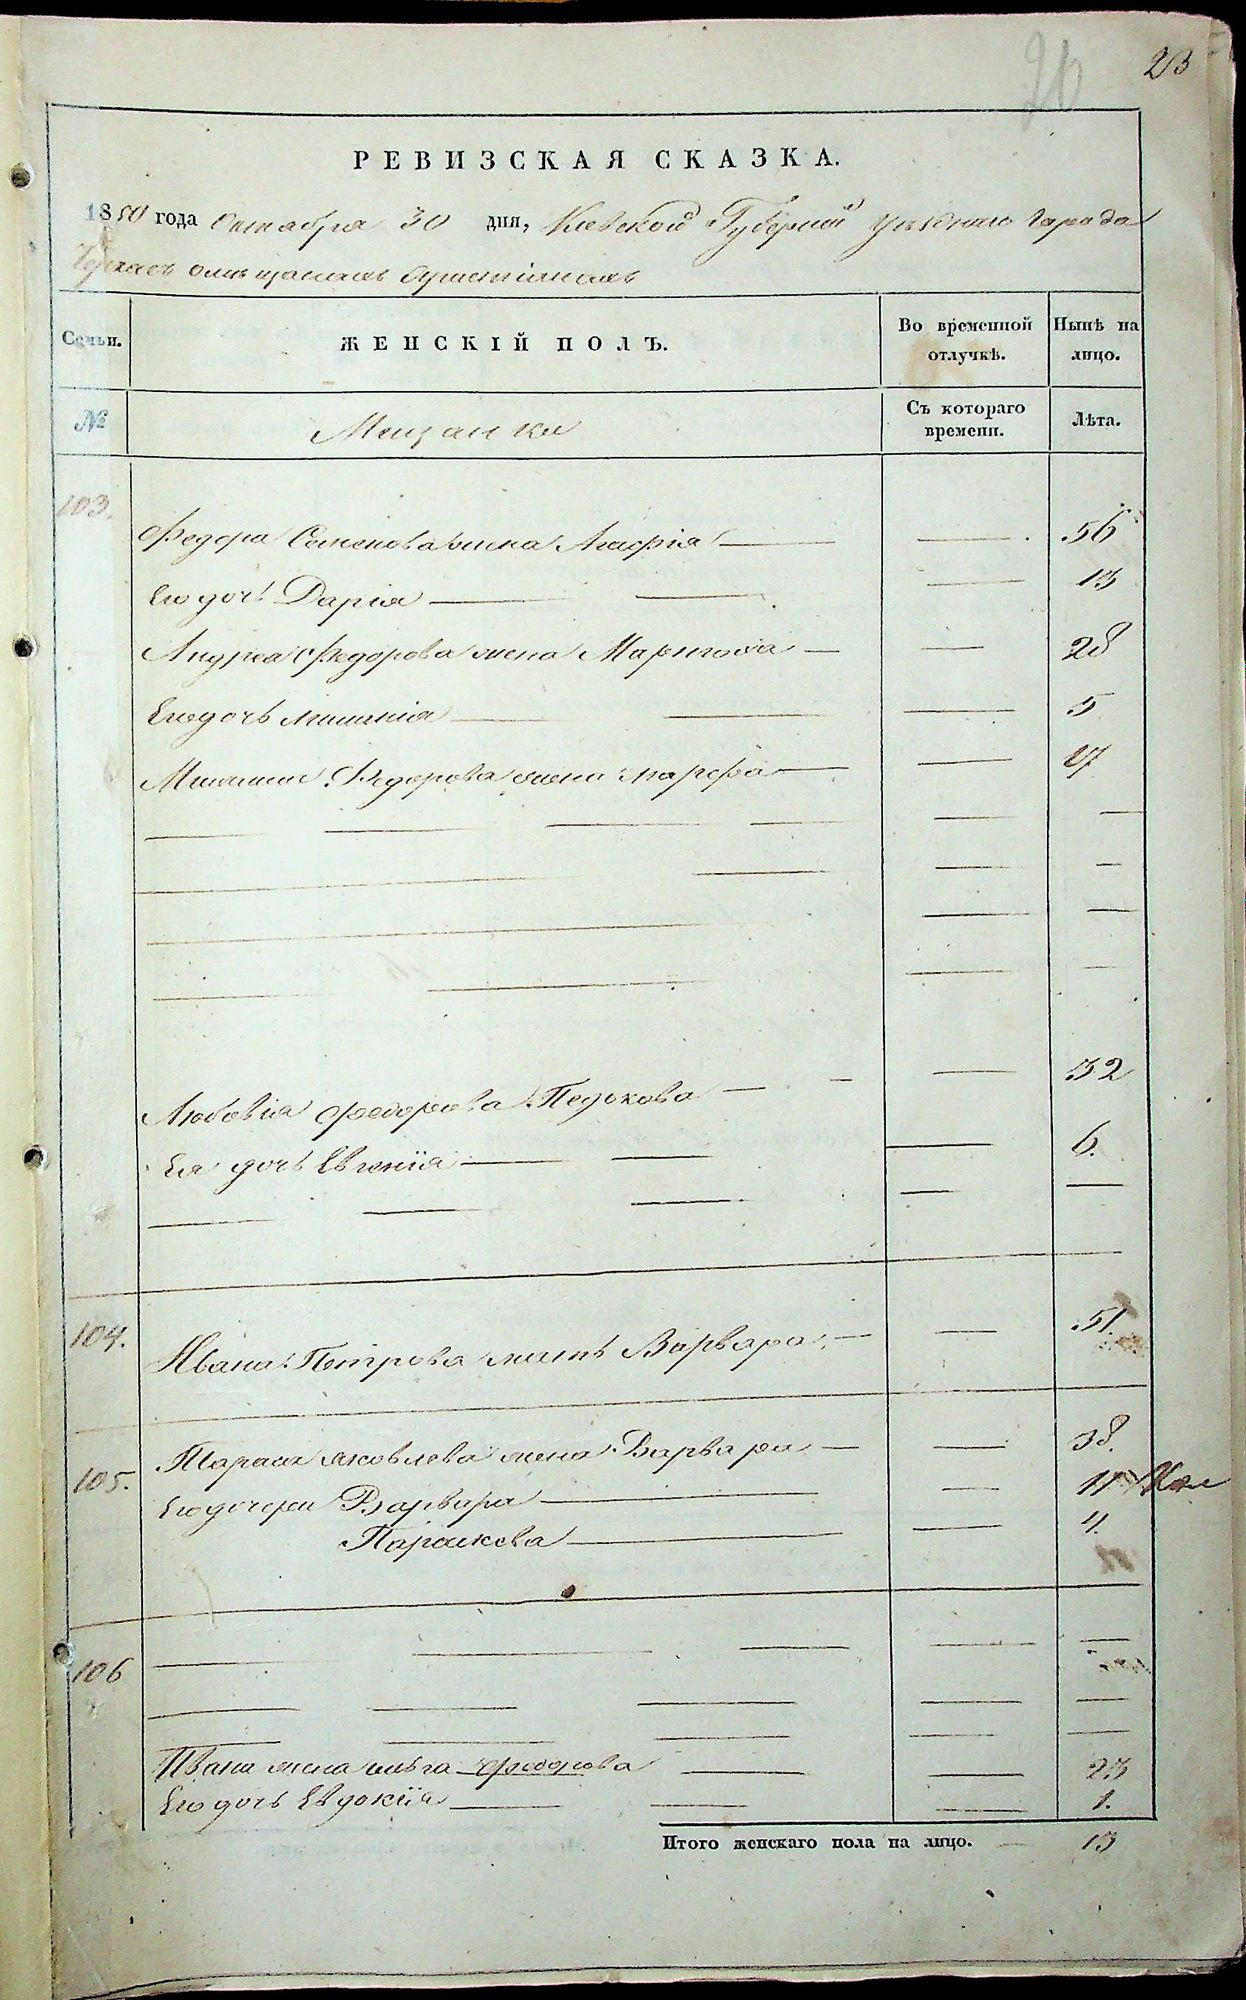 23
26
РЕВИЗСКАЯ СКАЗКА.
1850 года Октября 30 дня, Киевской Губернии уезднаго Города
Черкас о мещанах
Семьи. ЖЕНСКІЙ ПОЛЪ. Во временной отлучкѣ. Нынѣ на лицо.
№ Мещанки Съ котораго времени. Лѣта.
103.
Федора Семенова жена Агафія 56
Его дочь Дарія 13
Андрея Федорова жена Марѳа 28
Его дочь 5
Федорова жена Марфа 27
Любовія Федорова 32
Ея дочь Евгенія 6.
104. Ивана Петрова мать Варвара 51.
105. Тараса Яковлева жена Варвара 38.
Его дочери Варвара 11
Параскева 4.
106
Ивана жена Ольга Федорова 23
Его дочь Евдокія 1.
Итого женскаго пола на лицо. 13